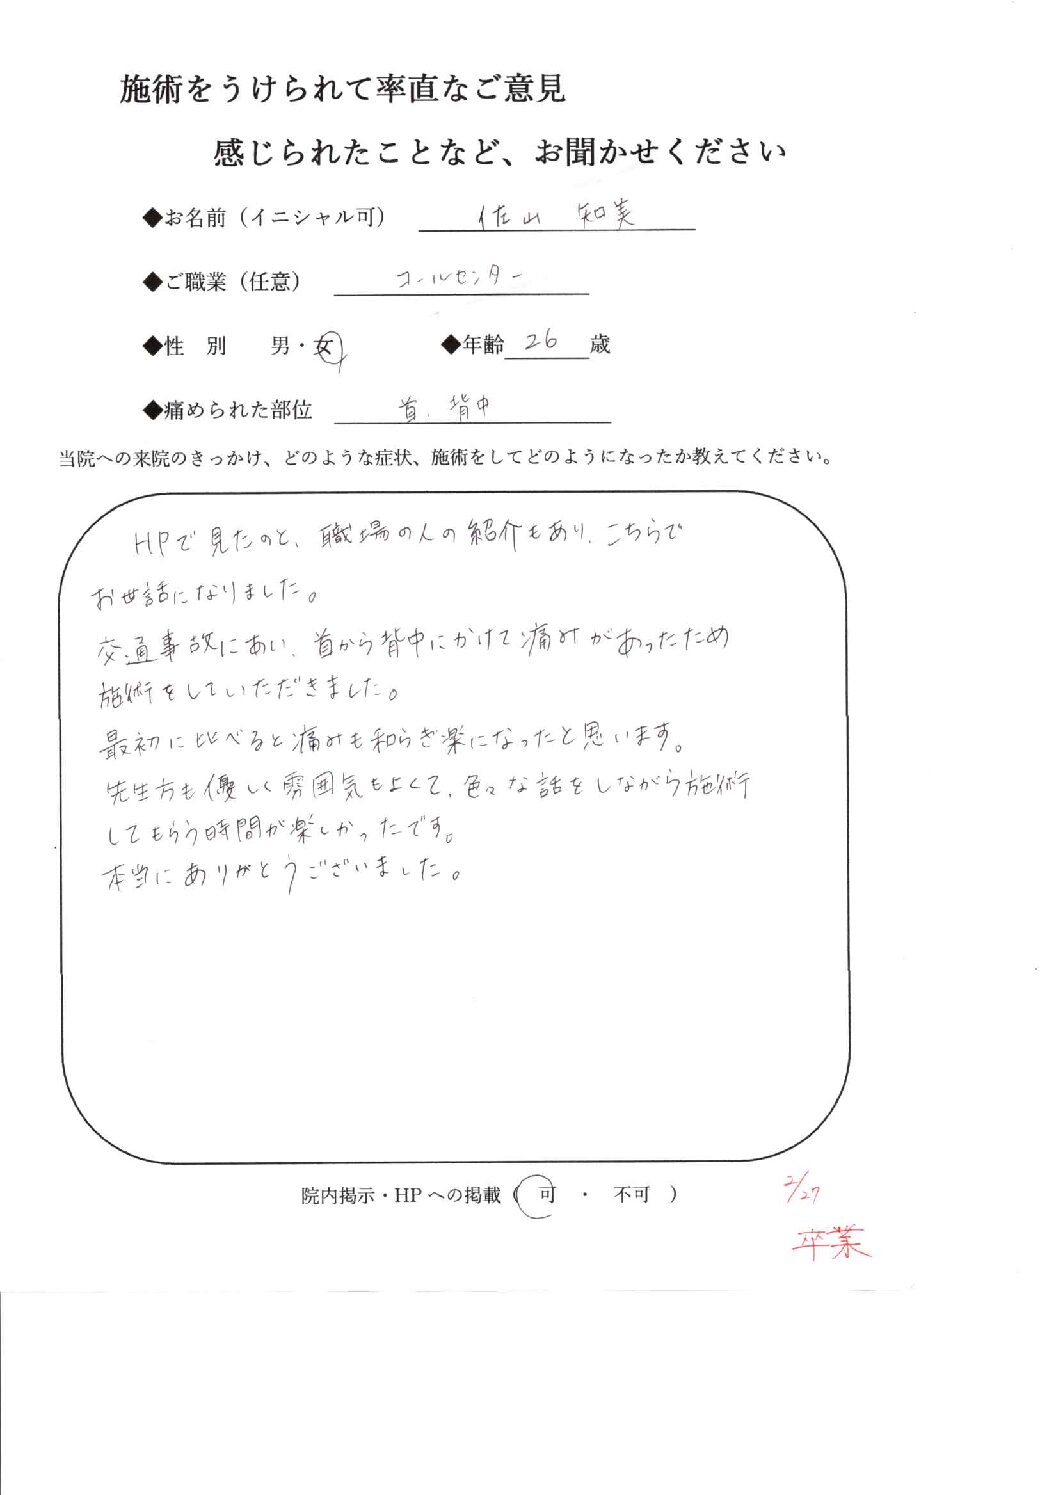 施術をうけられて率直なご意見
感じられたことなど、お聞かせください
◆お名前（イニシャル可） 佐山 知美
◆ご職業（任意） コールセンター
◆性 別 男・女 ◆年齢 26 歳
◆痛められた部位 首、背中
当院への来院のきっかけ、どのような症状、施術をしてどのようになったか教えてください。
HPで見たのと、職場の人の紹介もあり、こちらで
お世話になりました。
交通事故にあい、首から背中にかけて痛みがあったため
施術をしていただきました。
最初に比べると痛みも和らぎ楽になったと思います。
先生方も優しく雰囲気もよくて、色々な話をしながら施術
してもらう時間が楽しかったです。
本当にありがとうございました。
院内掲示・HPへの掲載（ 可 ・ 不可 ）
2/27
卒業